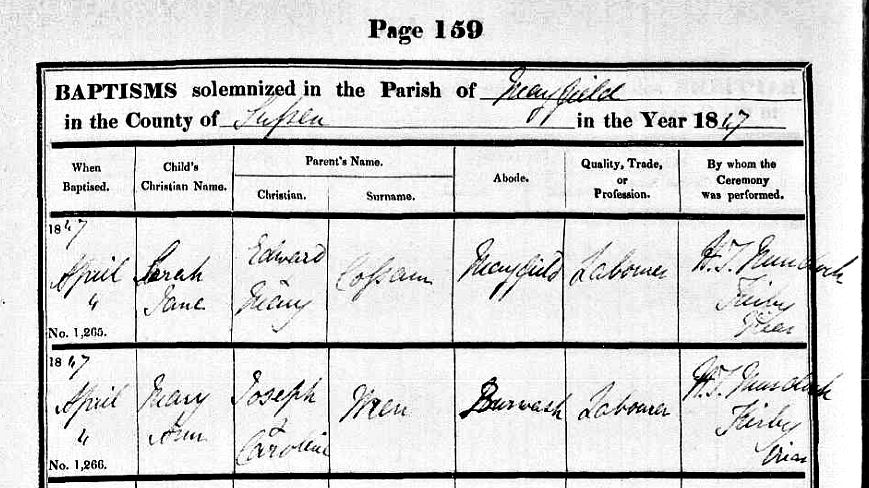 Page 159
BAPTISMS solemnized in the Parish of Mayfield
in the County of Sussex in the Year 1847
When Baptised.
Child's Christian Name.
Parent's Name.
Christian.
Surname.
Abode.
Quality, Trade, or Profession.
By whom the Ceremony was performed.
1847
April
4
No. 1,265.
Sarah
Jane
Edward
Mary
Cossam
Mayfield
Labourer
H.T. Murdoch
Kirby
Vicar
1847
April
4
No. 1,266.
Mary
Ann
Joseph
&
Caroline
Wren
Burwash
Labourer
H.T. Murdoch
Kirby
Vicar